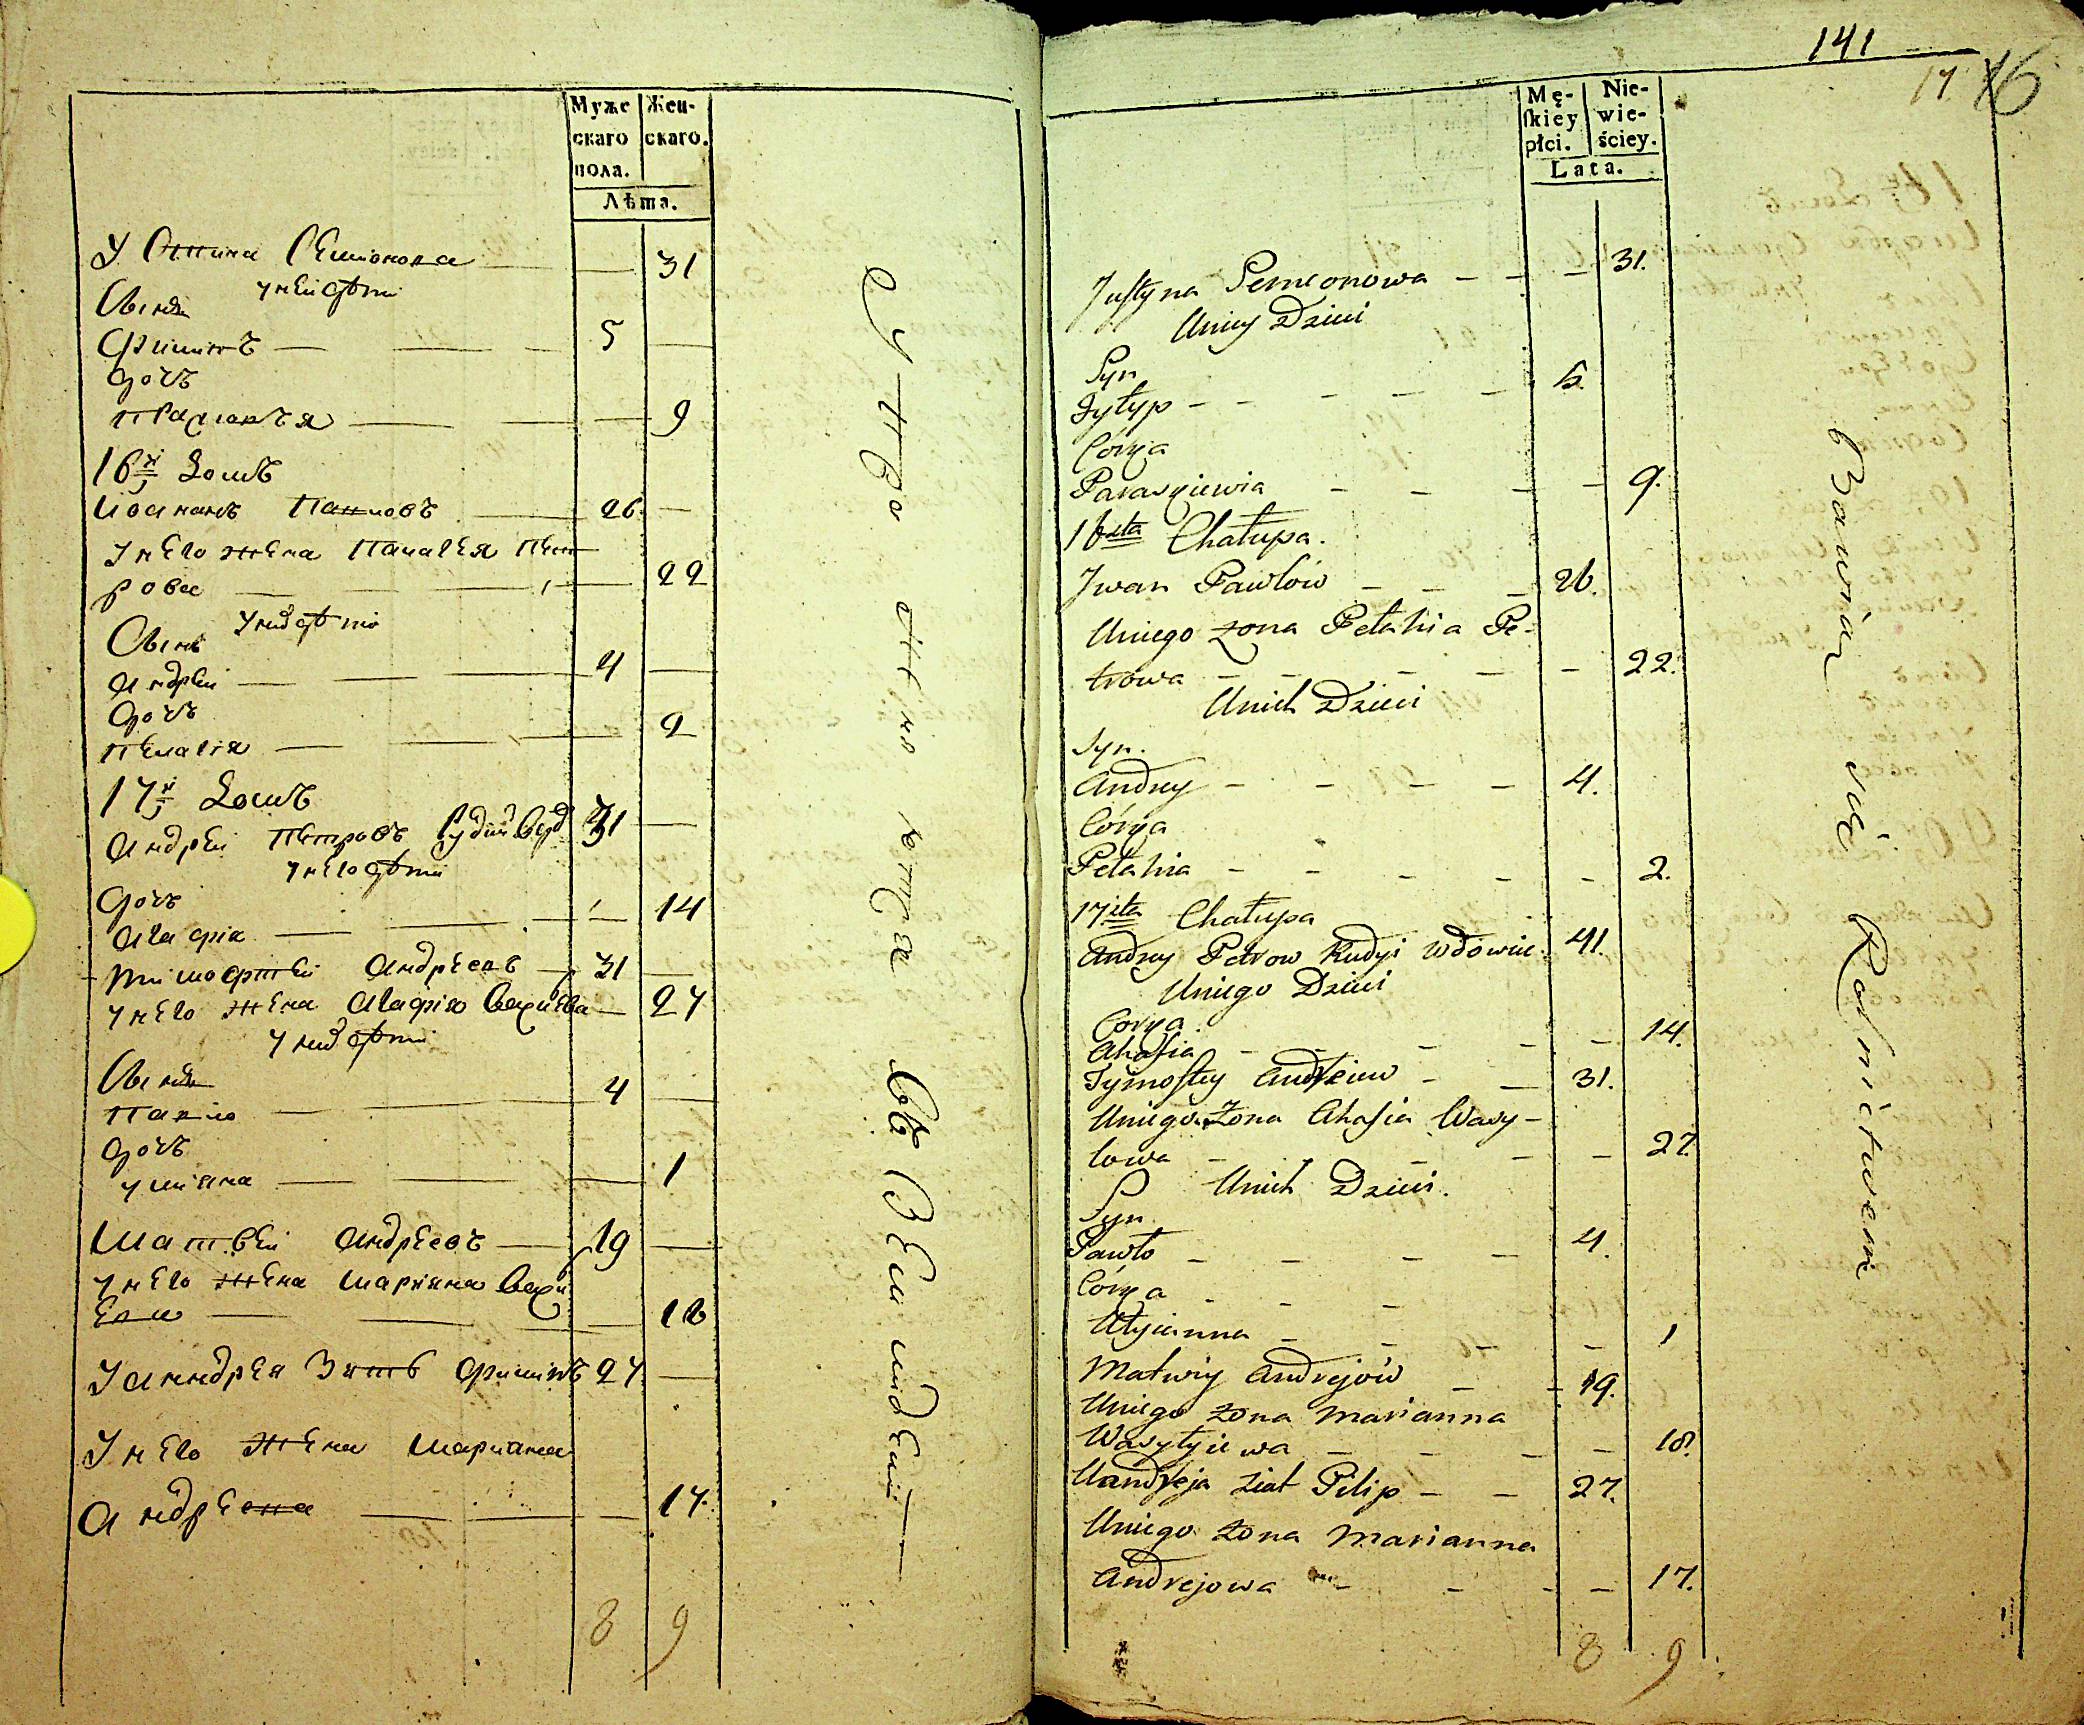 Муже
скаго
пола.
Жен-
скаго.
Лѣта.
31
5
дочъ
9
16й домъ
Иванъ Павловъ 26
У него жена Палагея Пет
рова 22
У них дѣти
Сынъ
Андрей 4
дочъ
Пелагія 2
17й домъ
Андрей Петровъ
У него дѣти
дочъ
Агафія 14
Тимофтей Андреевъ 31
У него жена Агафія 27
У них дѣти
Сынъ
Павло 4
дочъ
Улияна 1
Матвей Андреевъ 19
У него жена Марияна
18
У Андрея Зять Филипъ 27
У него жена Марияна
Андреева 17
8 9
141
17 16
Mę-
skiey
płci.
Nie-
wie-
ściey.
Lata.
Justyna Semeonowa 31.
Uniey Dzieci
Syn
Fylyp 5.
Córka
Paraskiewia 9.
16sta Chałupa.
Jwan Pawłow 26.
Uniego żona Pełahia Pe-
trowa 22.
Unich Dzieci
Syn.
Andrey 4.
Córka
Pełahia 2.
17sta Chałupa
Andrey Petrow Rudyi wdowiec 41.
Uniego Dzieci
Corka
Ahafia 14.
Tymoftey Andreiew 31.
Uniego żona Ahafia Wasy-
lowa 27.
Unich Dzieci.
Syn
Pawło 4.
Córka
Ulyianna 1
Matwiy Andrejów 19.
Uniego żona Marianna
Wasylyiewa 18.
Uandreja ziat Pilip 27.
Uniego żona Marianna
Andrejowa 17.
8 9
Bawiąc się Rolnictwem